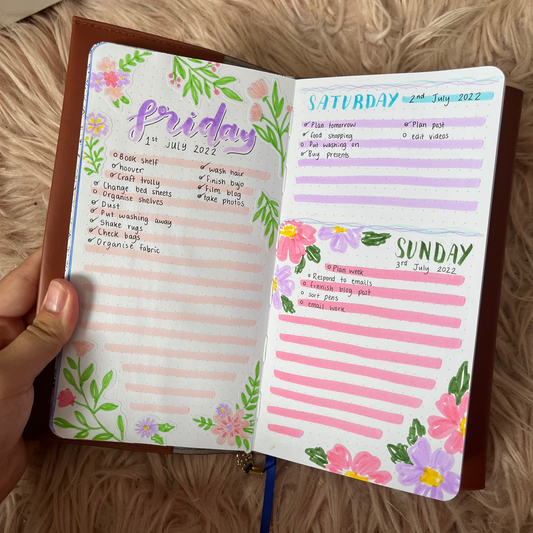 friday
1st JULY 2022
Book shelf
hoover
Craft trolly
Change bed sheets
Organise shelves
Dust
Put washing away
Shake rugs
Check bags
Organise fabric
wash hair
Finish bujo
Film blog
take photos
SATURDAY 2nd July 2022
Plan tomorrow
food shopping
Put washing on
Buy presents
Plan post
edit videos
SUNDAY
3rd July 2022
Plan week
Respond to emails
frenish blog post
sort pens
email work